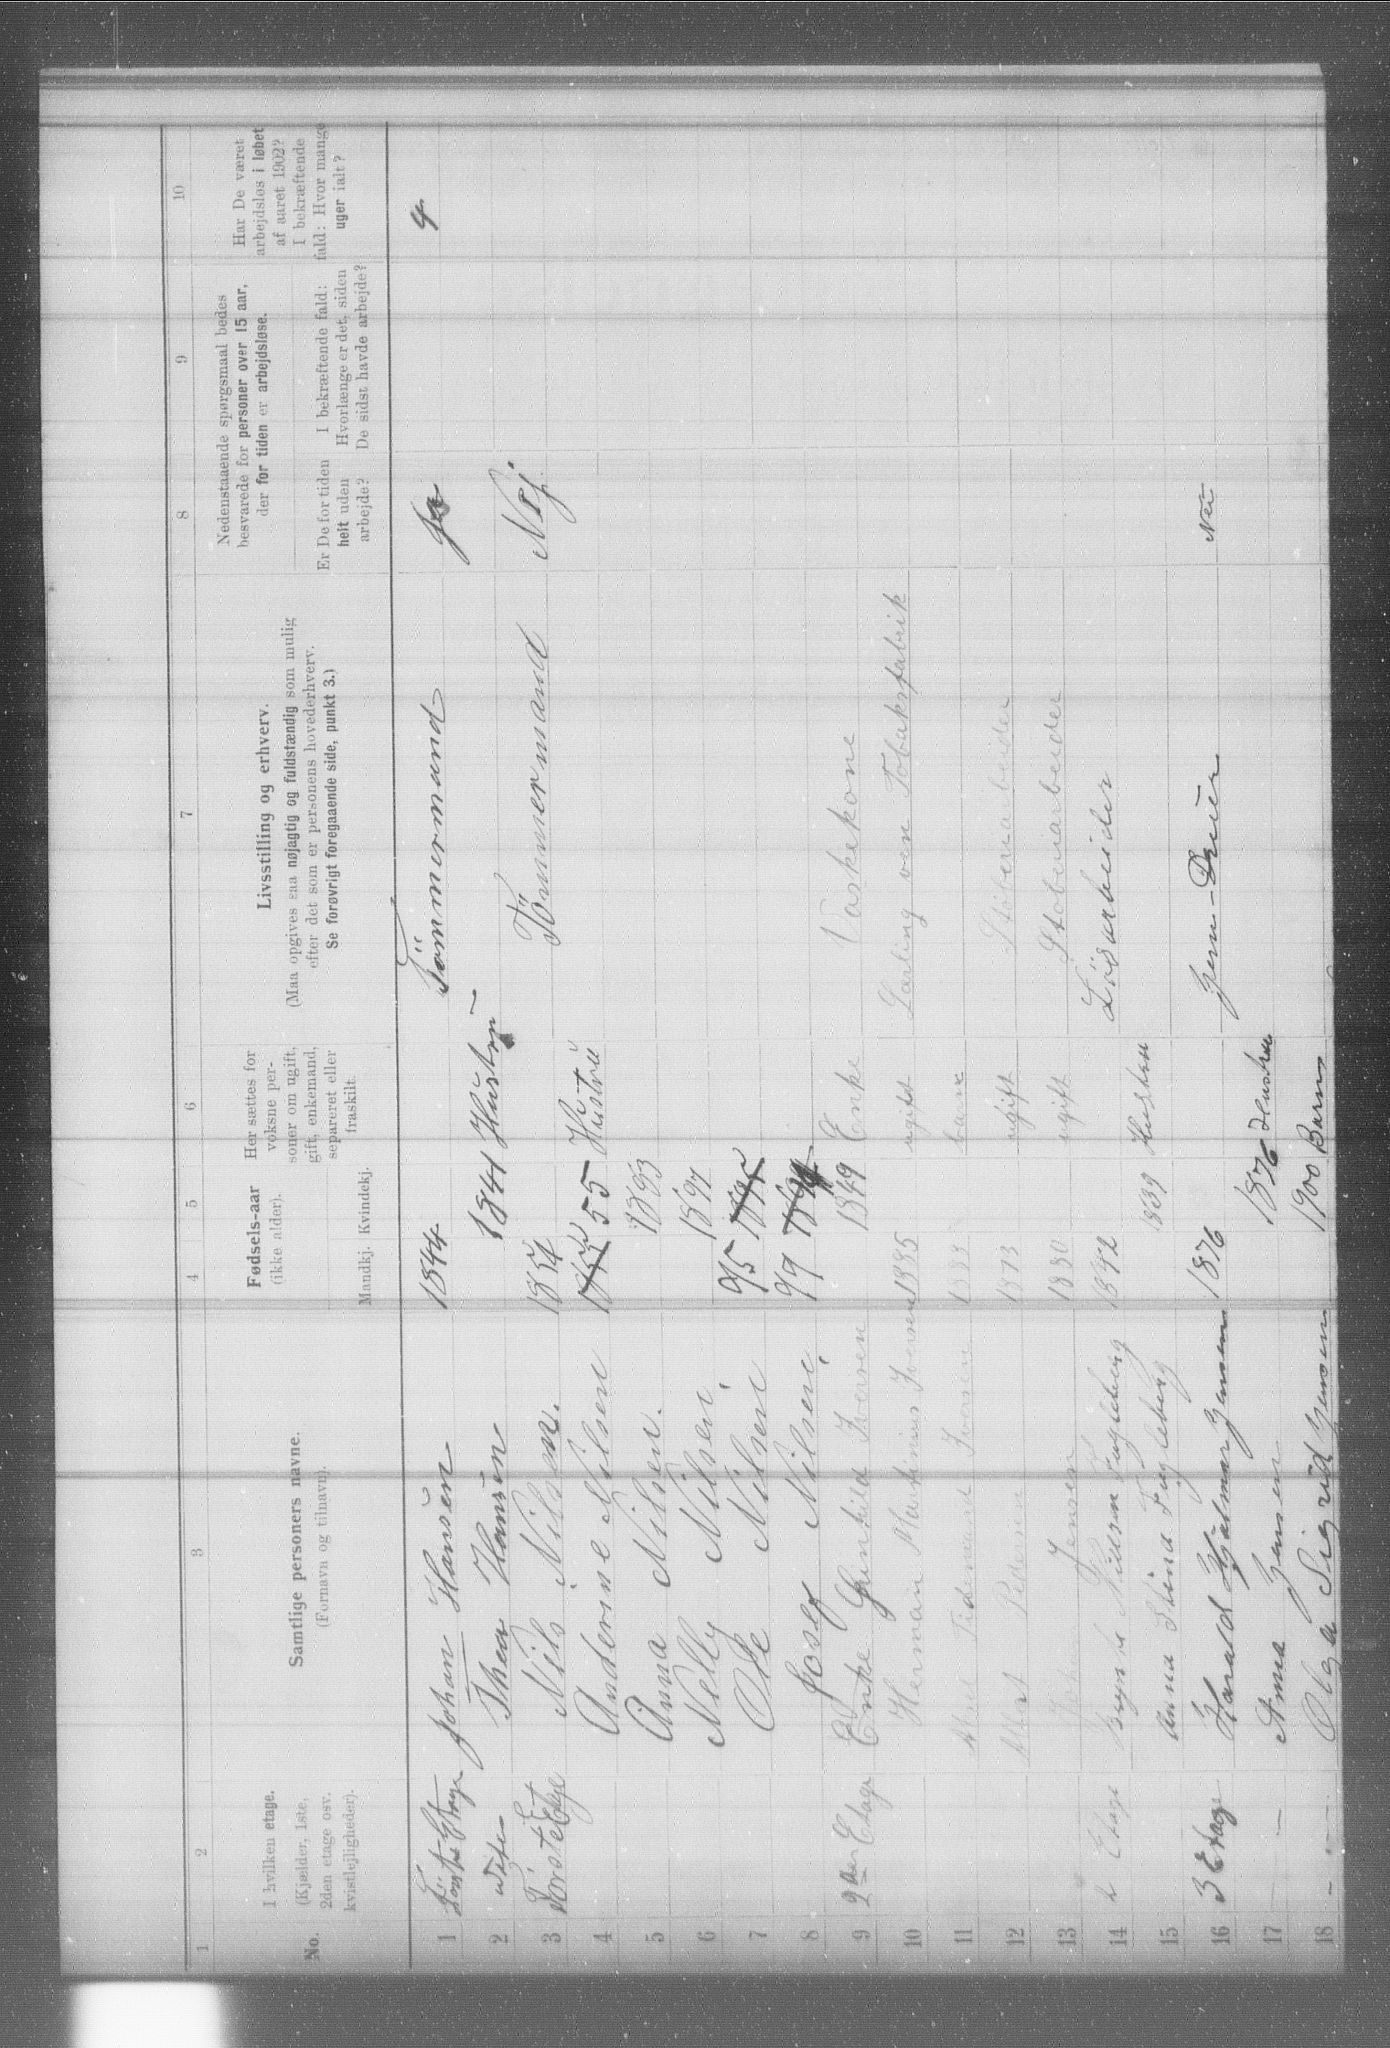 1 2 3 4 5 6 7 8 9 10
No.
I hvilken etage.
(Kjælder, 1ste,
2den etage osv.
kvistlejligheder).
Samtlige personers navne.
(Fornavn og tilnavn).
Fødsels-aar
(ikke alder).
Mandkj. Kvindekj.
Her sættes for
voksne per-
soner om ugift,
gift, enkemand,
separeret eller
fraskilt.
Livsstilling og erhverv.
(Maa opgives saa nøjagtig og fuldstændig som mulig
efter det som er personens hovederhverv.
Se forøvrigt foregaaende side, punkt 3.)
Nedenstaaende spørgsmaal bedes
besvarede for personer over 15 aar,
der for tiden er arbejdsløse.
Er De for tiden
helt uden
arbejde?
I bekræftende fald:
Hvorlænge er det, siden
De sidst havde arbejde?
Har De været
arbejdsløs i løbet
af aaret 1902?
I bekræftende
fald: Hvor mange
uger ialt?
1 Johan Hansen 1844 Tömmermand Ja 4
2 Thea Hansen 1841 Hustru
3 Förste Etage Nils Nilsen. 1854 Tömmermand Nej.
4 Anderine Nilsen 55 Hustru
5 Anna Nilsen. 1893
6 Nelly Nilsen 1897
7 Ole Nilsen 95
8 Josef Nilsen 99
9 2den Etage Enke Gunhild Iversen 1849 Enke Vaskekone
10 Herman Martinius Iversen 1885 ugift Lærling ven Tobaksfabrik
11 Tidemand Iversen barn
12 Albert Pedersen 1873 ugift Stöberiarbeider
13 Johan Jensen 1880 ugift Stöberiarbeider
14 2 Etage Nilsen Fugleberg 1842 Lösarbeider
15 Anna Stina Fugleberg 1839 Hustru
16 3 Etage Harald Hjalmar Jensen 1876 Nei
17 — Anna Jensen 1876 Hustru
18 - - - Olga Sigrid Jensen 1900 Barn